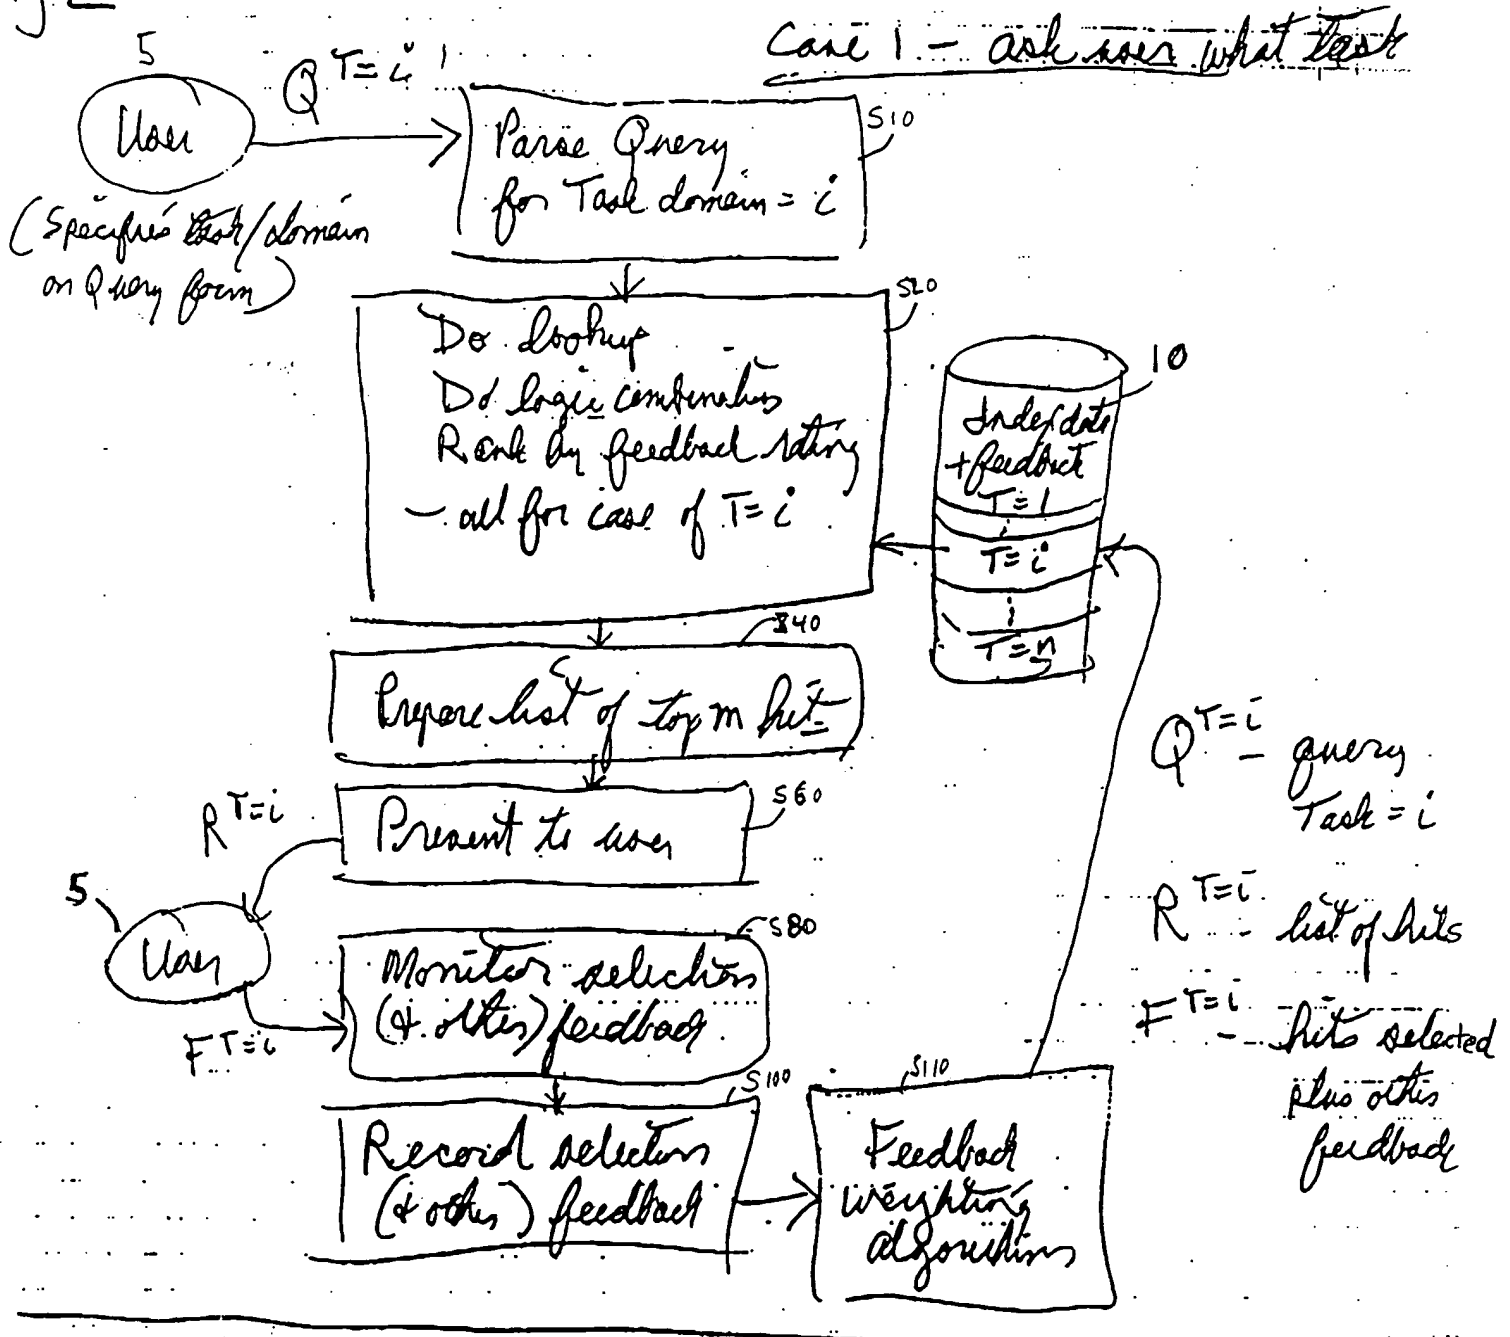 Case 1 - ask user what task
5
Q T=i
User
Parse Query
for Task domain = i
S10
(Specifies task/domain
on Query form)
S20
Do lookup
Do logic combinations
Rank by feedback rating
- all for case of T=i
10
Index data
+ feedback
T=1
T=i
T=n
S40
Prepare list of top m hits
S60
Present to user
R T=i
5
User
F T=i
S80
Monitor selections
(+ other) feedback
S100
Record selections
(+ other) feedback
S110
Feedback
weighting
algorithms
Q T=i - query
Task = i
R T=i - list of hits
F T=i - hits selected
plus other
feedback